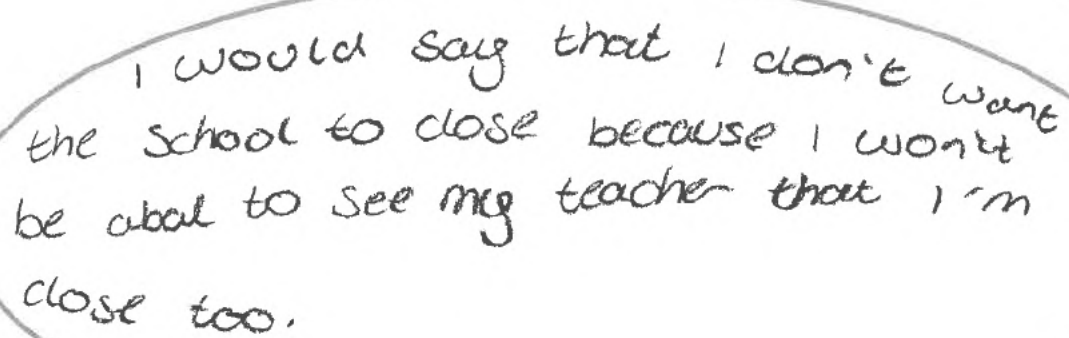 I would say that I don't want
the school to close because I won't
be abal to see my teacher that I'm
close too.